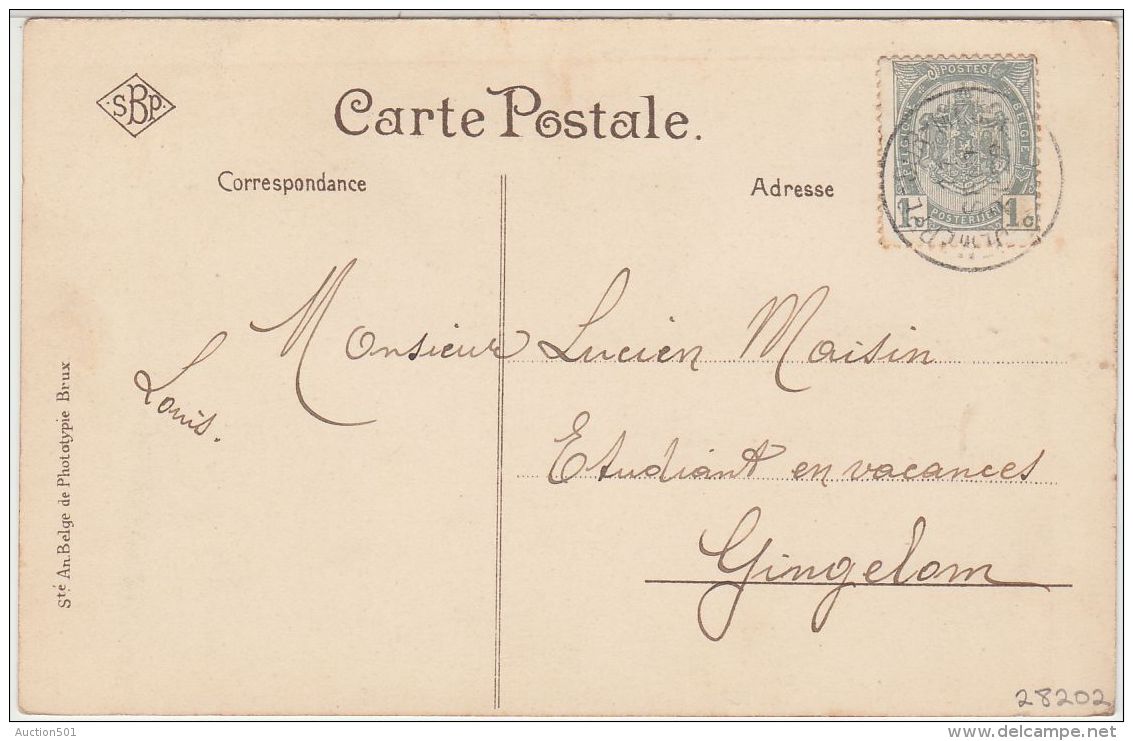 SBP
Carte Postale.
Correspondance
Adresse
POSTES
BELGIQUE
BELGIE
1c
POSTERIJEN
1c
Monsieur Lucien Maisin
Louis.
Etudiant en vacances
Gingelom
Sté An. Belge de Phototypie Brux
28202
Auction501
www.delcampe.net